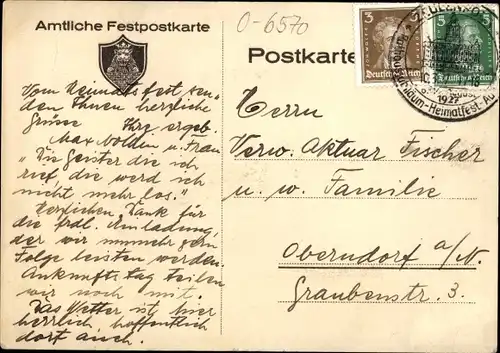 Amtliche Festpostkarte
0-6570
Postkarte
3
3
Deutsches Reich
5
5
Deutsches Reich
1927
Heimatfest
Vom Heimatfest sen-
den Ihnen herzliche
Grüsse Ihre ergeb.
Max Bolden u. Frau
"Die Geister die ich
rief, die werd ich
nicht mehr los."
Herzlichen Dank für
die frdl. Einladung,
der wir nunmehr gern
Folge leisten werden.
Ankunftstag teilen
wir noch mit.
Das Wetter ist hier
herrlich, hoffentlich
dort auch.
Herrn
Verw. Aktuar Fischer
u. w. Familie
Oberndorf a/N.
Graubenstr. 3.